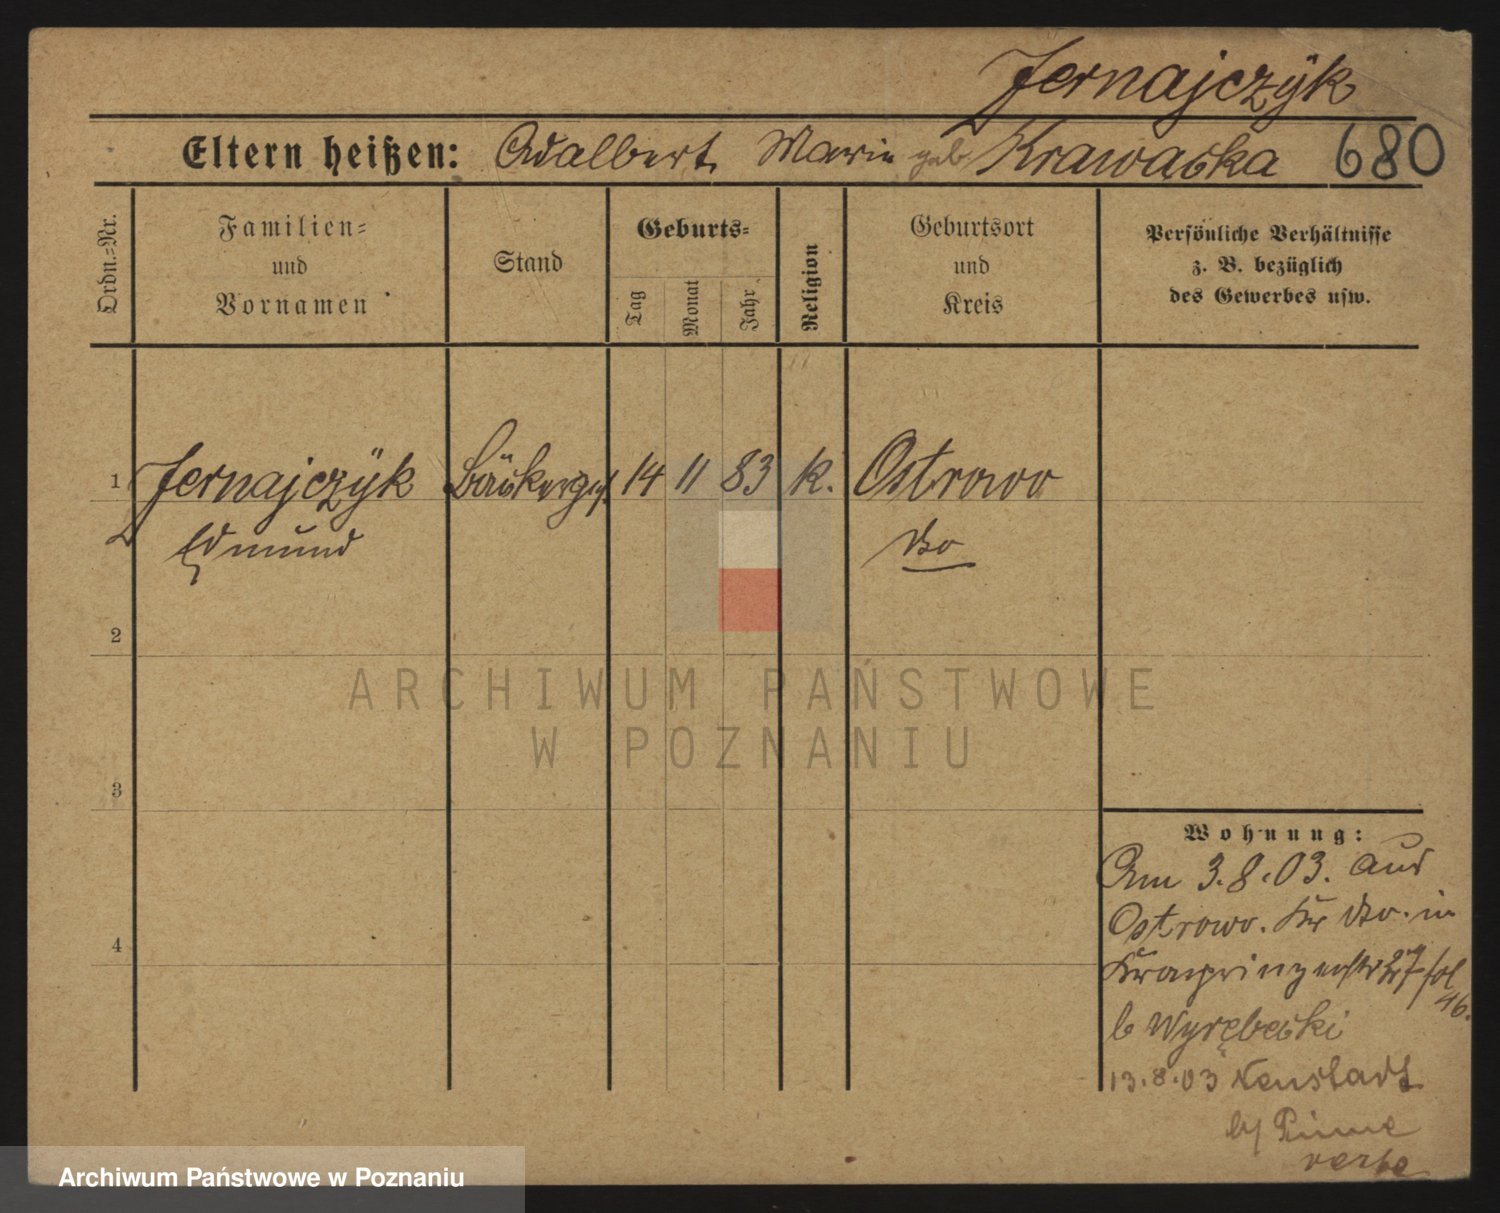 Jernajczÿk
Eltern heißen: Adalbert Marie geb. Krawacka 680
Ordn.-Nr.
Familien-
und
Vornamen
Stand
Geburts-
Tag
Monat
Jahr
Religion
Geburtsort
und
Kreis
Persönliche Verhältnisse
z. B. bezüglich
des Gewerbes usw.
1 Jernajczÿk Bäckerges. 14 11 83 k. Ostrowo
Edmund do
2
3
4
Wohnung:
Am 3.8.03. aus
Ostrowo. Kr do. in
Kronprinzenstr 27
46.
b Wyrębecki
13.8.03 Neustadt
b/ Pinne
ARCHIWUM PAŃSTWOWE
W POZNANIU
Archiwum Państwowe w Poznaniu